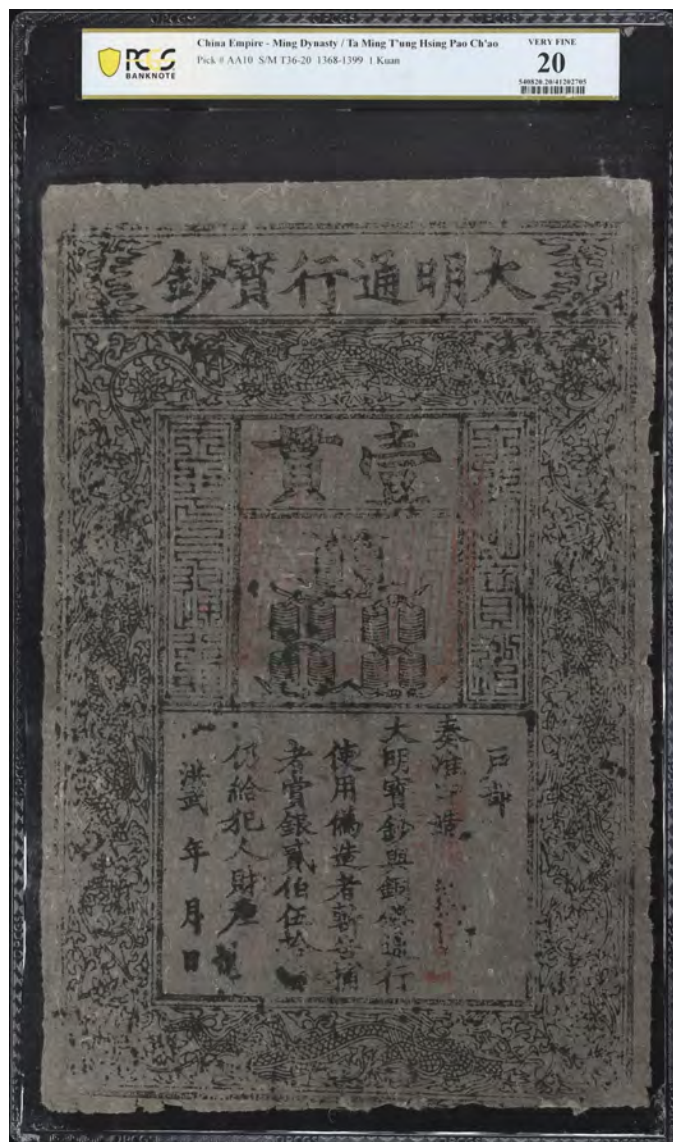 PCGS
BANKNOTE
China Empire - Ming Dynasty / Ta Ming T'ung Hsing Pao Ch'ao
Pick # AA10 S/M T36-20 1368-1399 1 Kuan
VERY FINE
20
540820.20/41202705
大明通行寶鈔
壹貫
戶部
奏准印造
大明寶鈔與銅錢通行
使用偽造者斬告捕
者賞銀貳伯伍拾
仍給犯人財產
洪武 年 月 日